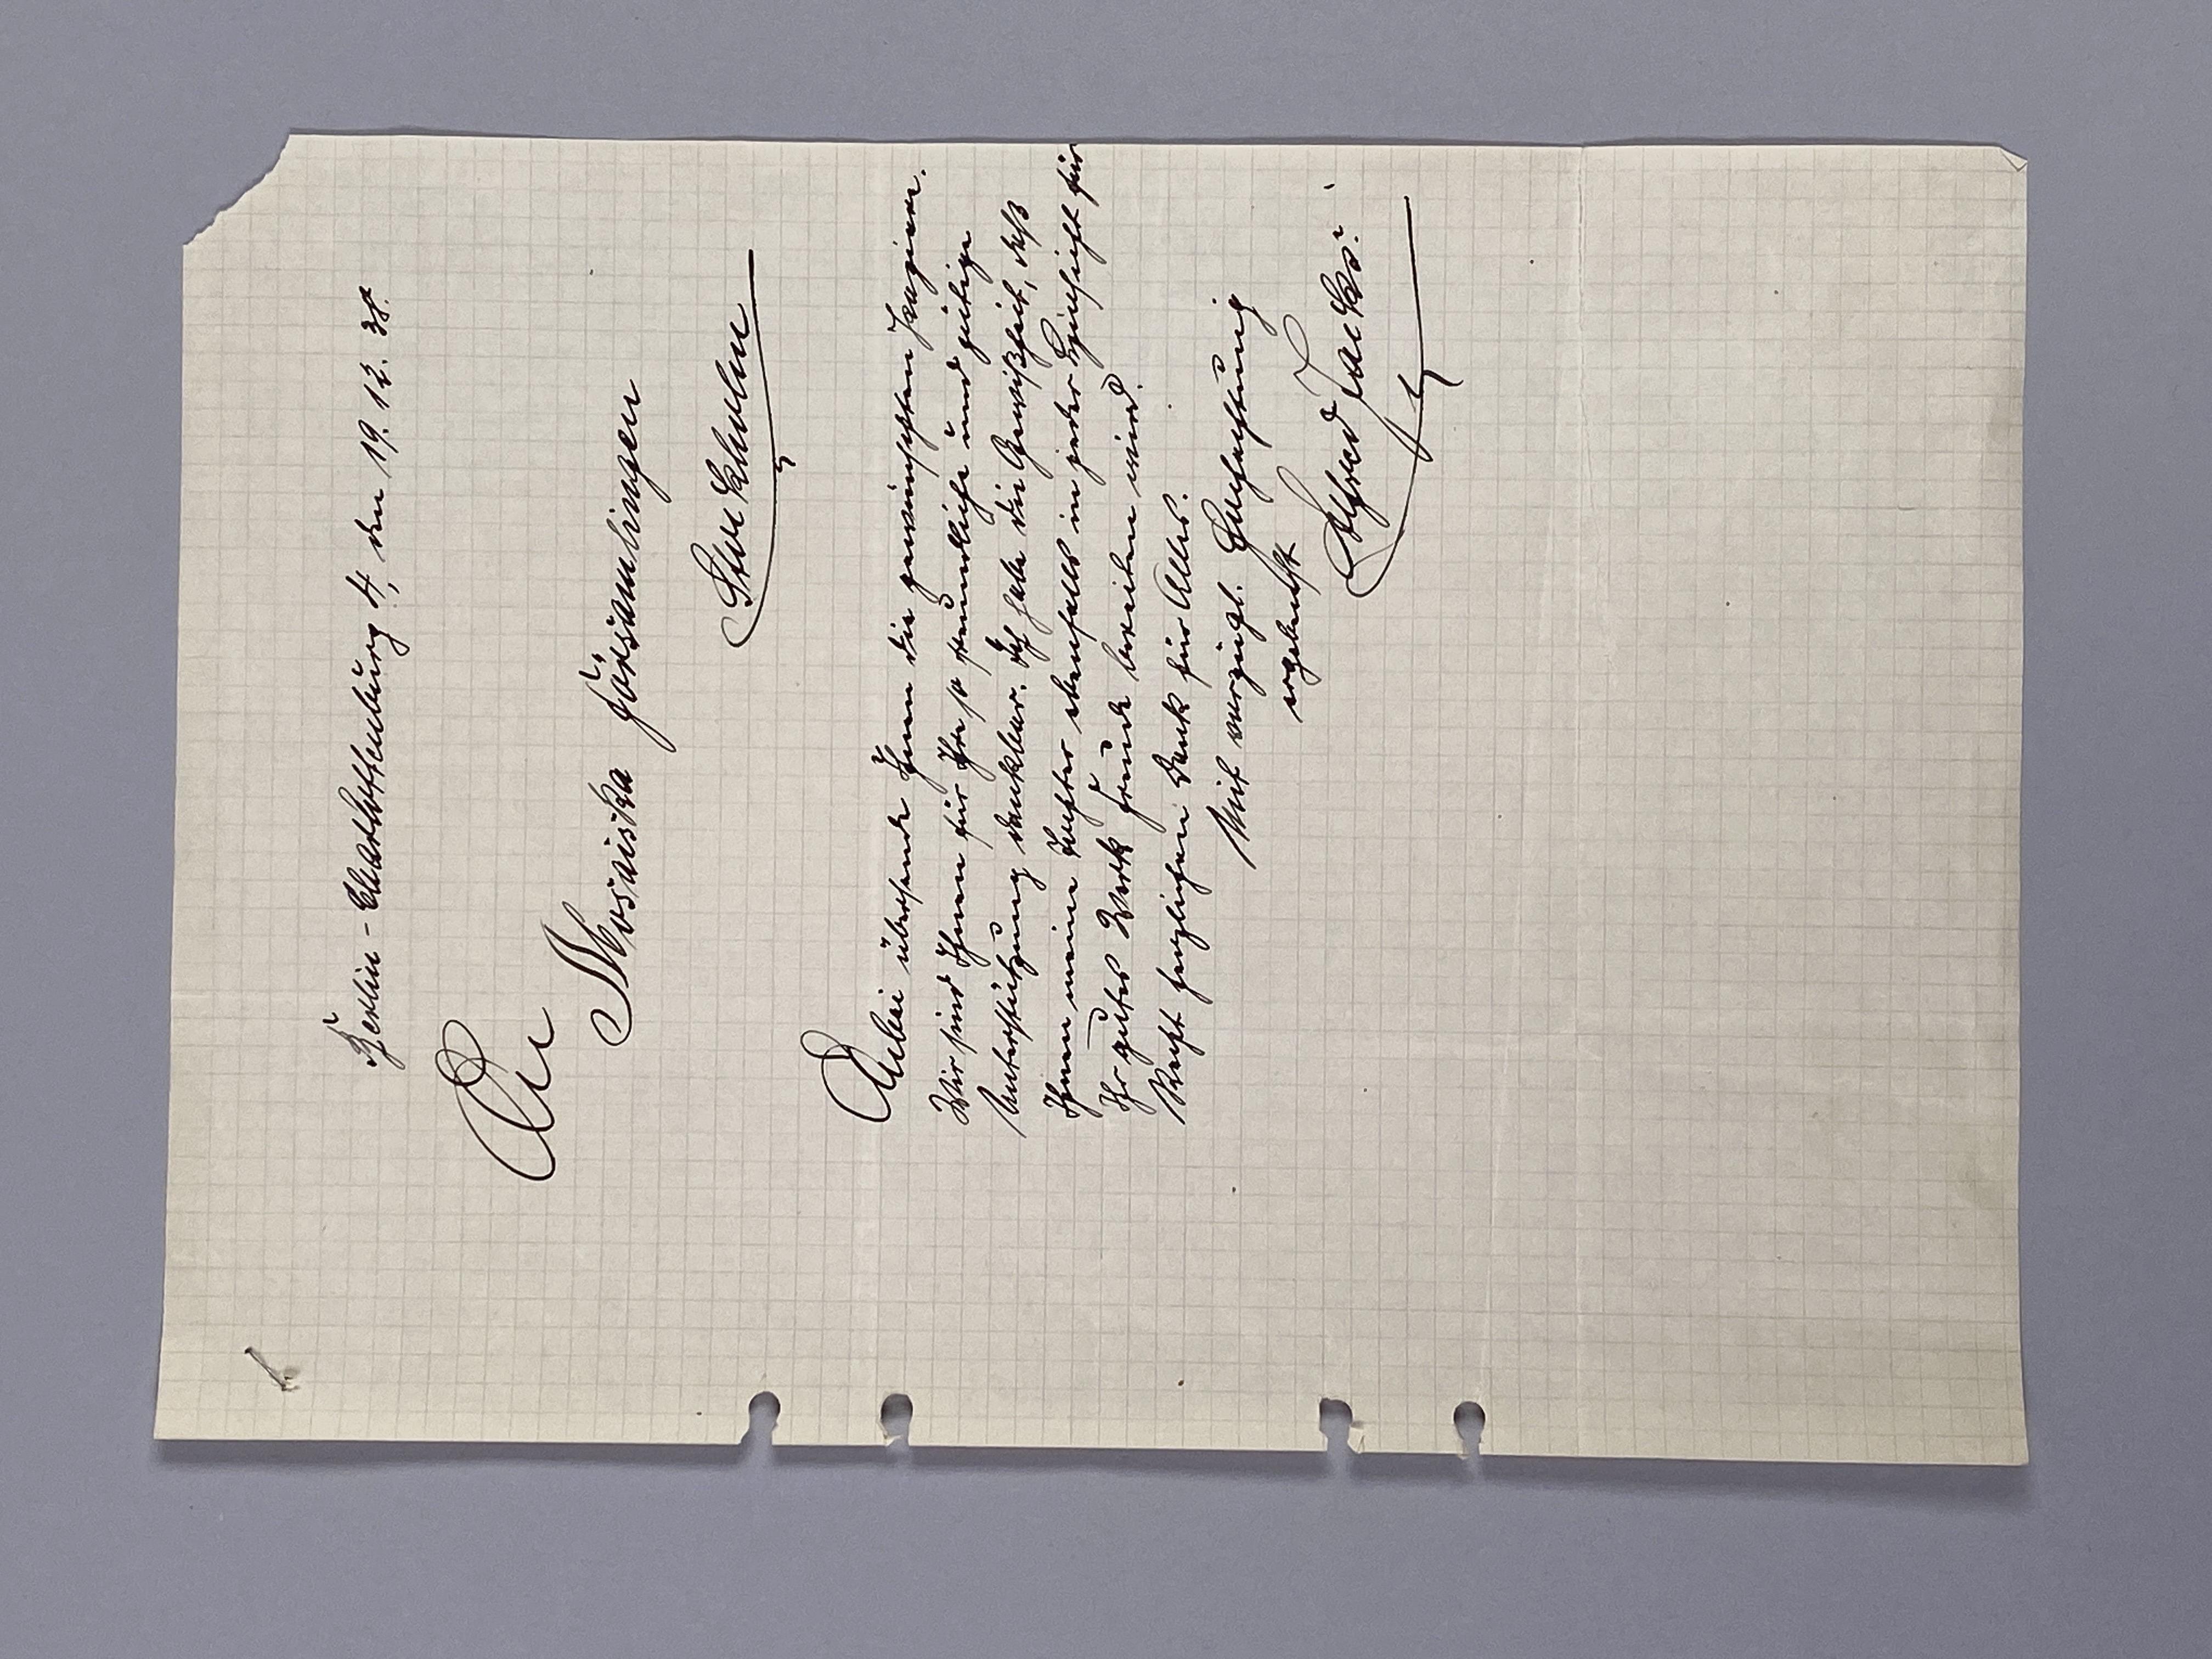 Berlin-Charlottenburg 4, den 19. 12. 38.
An
Mosaiska Församlingen
Stockholm
Anbei übersende Ihnen die gewünschten Zeugnisse.
Wir sind Ihnen für Ihre so freundliche und gütige
Unterstützung dankbar. Ich habe die Gewißheit, daß
Ihnen meine Tochter ebenfalls in jeder Hinsicht für
Ihr gutes Werk Freude bereiten wird.
Recht herzlichen Dank für Alles.
Mit vorzügl. Hochachtung
ergebenst
Alfred